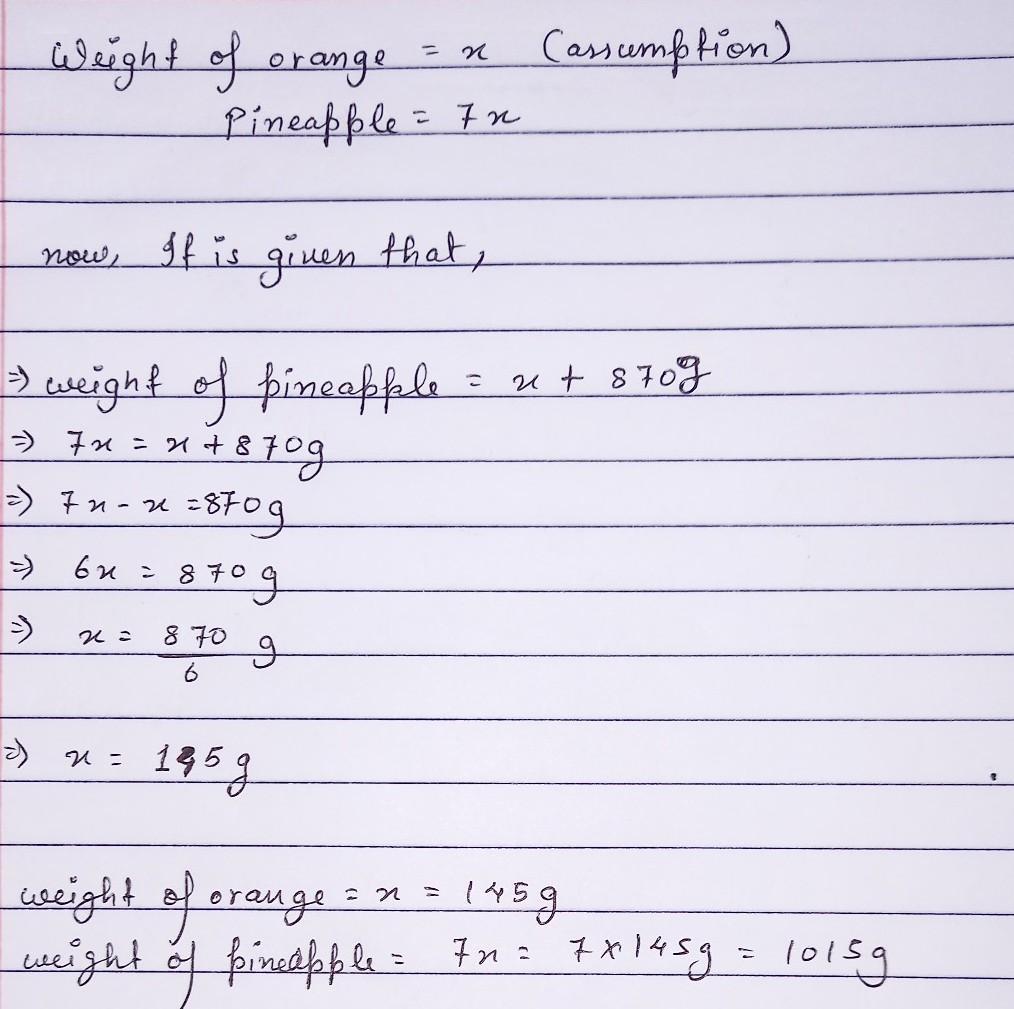 Weight of orange = x (assumption)
Pineapple = 7x
now, It is given that,
⇒ weight of pineapple = x + 870g
⇒ 7x = x + 870g
⇒ 7x - x = 870g
⇒ 6x = 870g
⇒ x = 870/6 g
⇒ x = 145g
weight of orange = x = 145g
weight of pineapple = 7x = 7×145g = 1015g